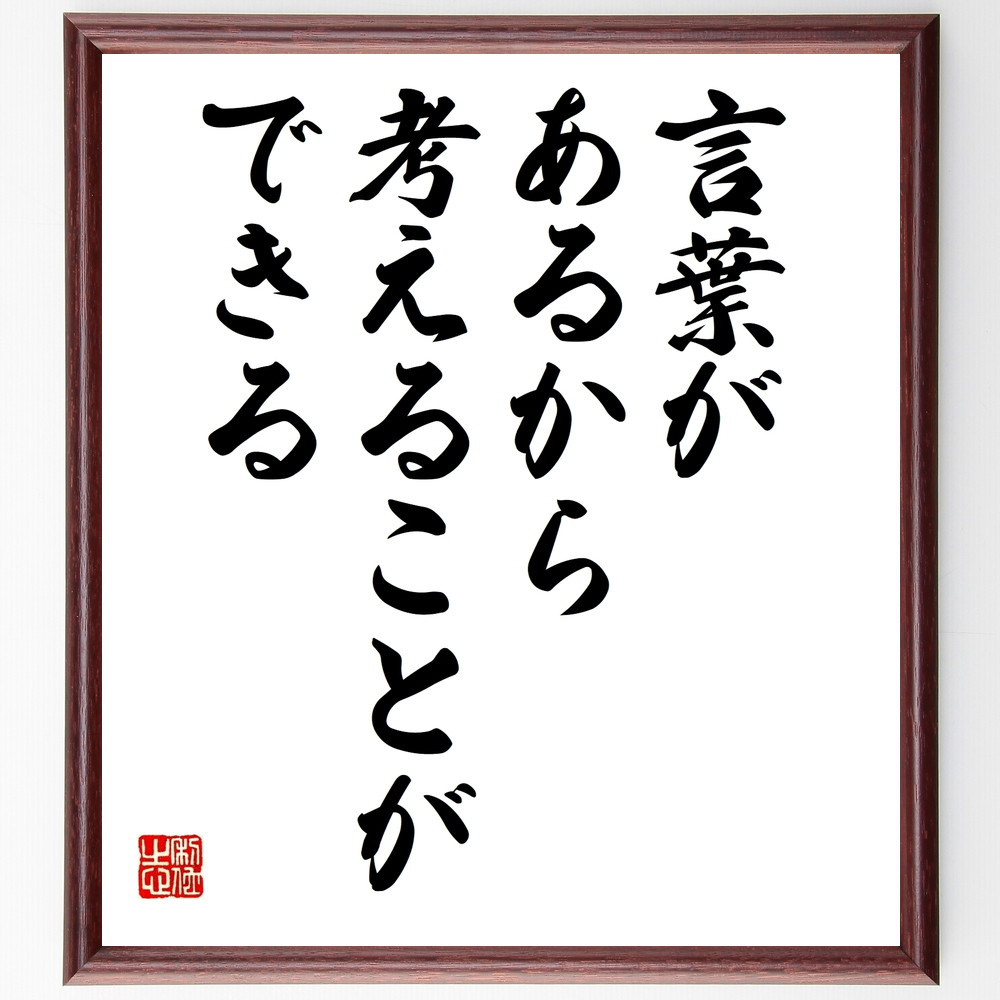 言葉が
あるから
考えることが
できる